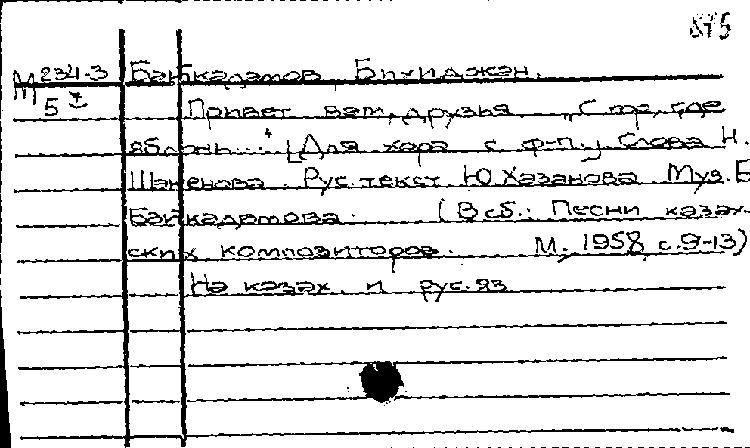 875
М 234-3 Байкадамов, Бахиджан.
5 I
Привет вам, друзья „Стр., где
яблонь..." [Для хора с ф-п.] Слова Н.
Шакенова. Рус. текст Ю Хазанова Муз. Б
Байкадамова. (В сб.: Песни казах-
ских композиторов. М., 1958, с. 9-13)
На казах. и рус. яз